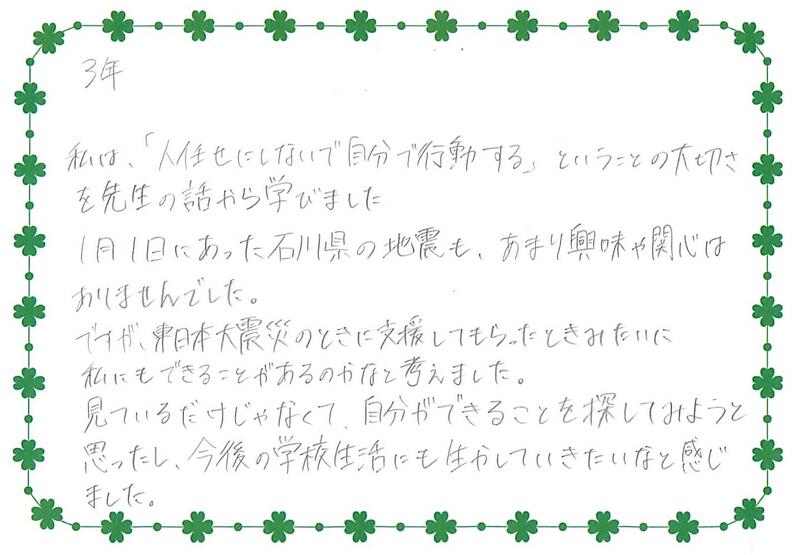 3年
私は、「人任せにしないで自分で行動する」ということの大切さ
を先生の話から学びました
1月1日にあった石川県の地震も、あまり興味や関心は
ありませんでした。
ですが、東日本大震災のときに支援してもらったときみたいに
私にもできることがあるのかなと考えました。
見ているだけじゃなくて、自分ができることを探してみようと
思ったし、今後の学校生活にも生かしていきたいなと感じ
ました。